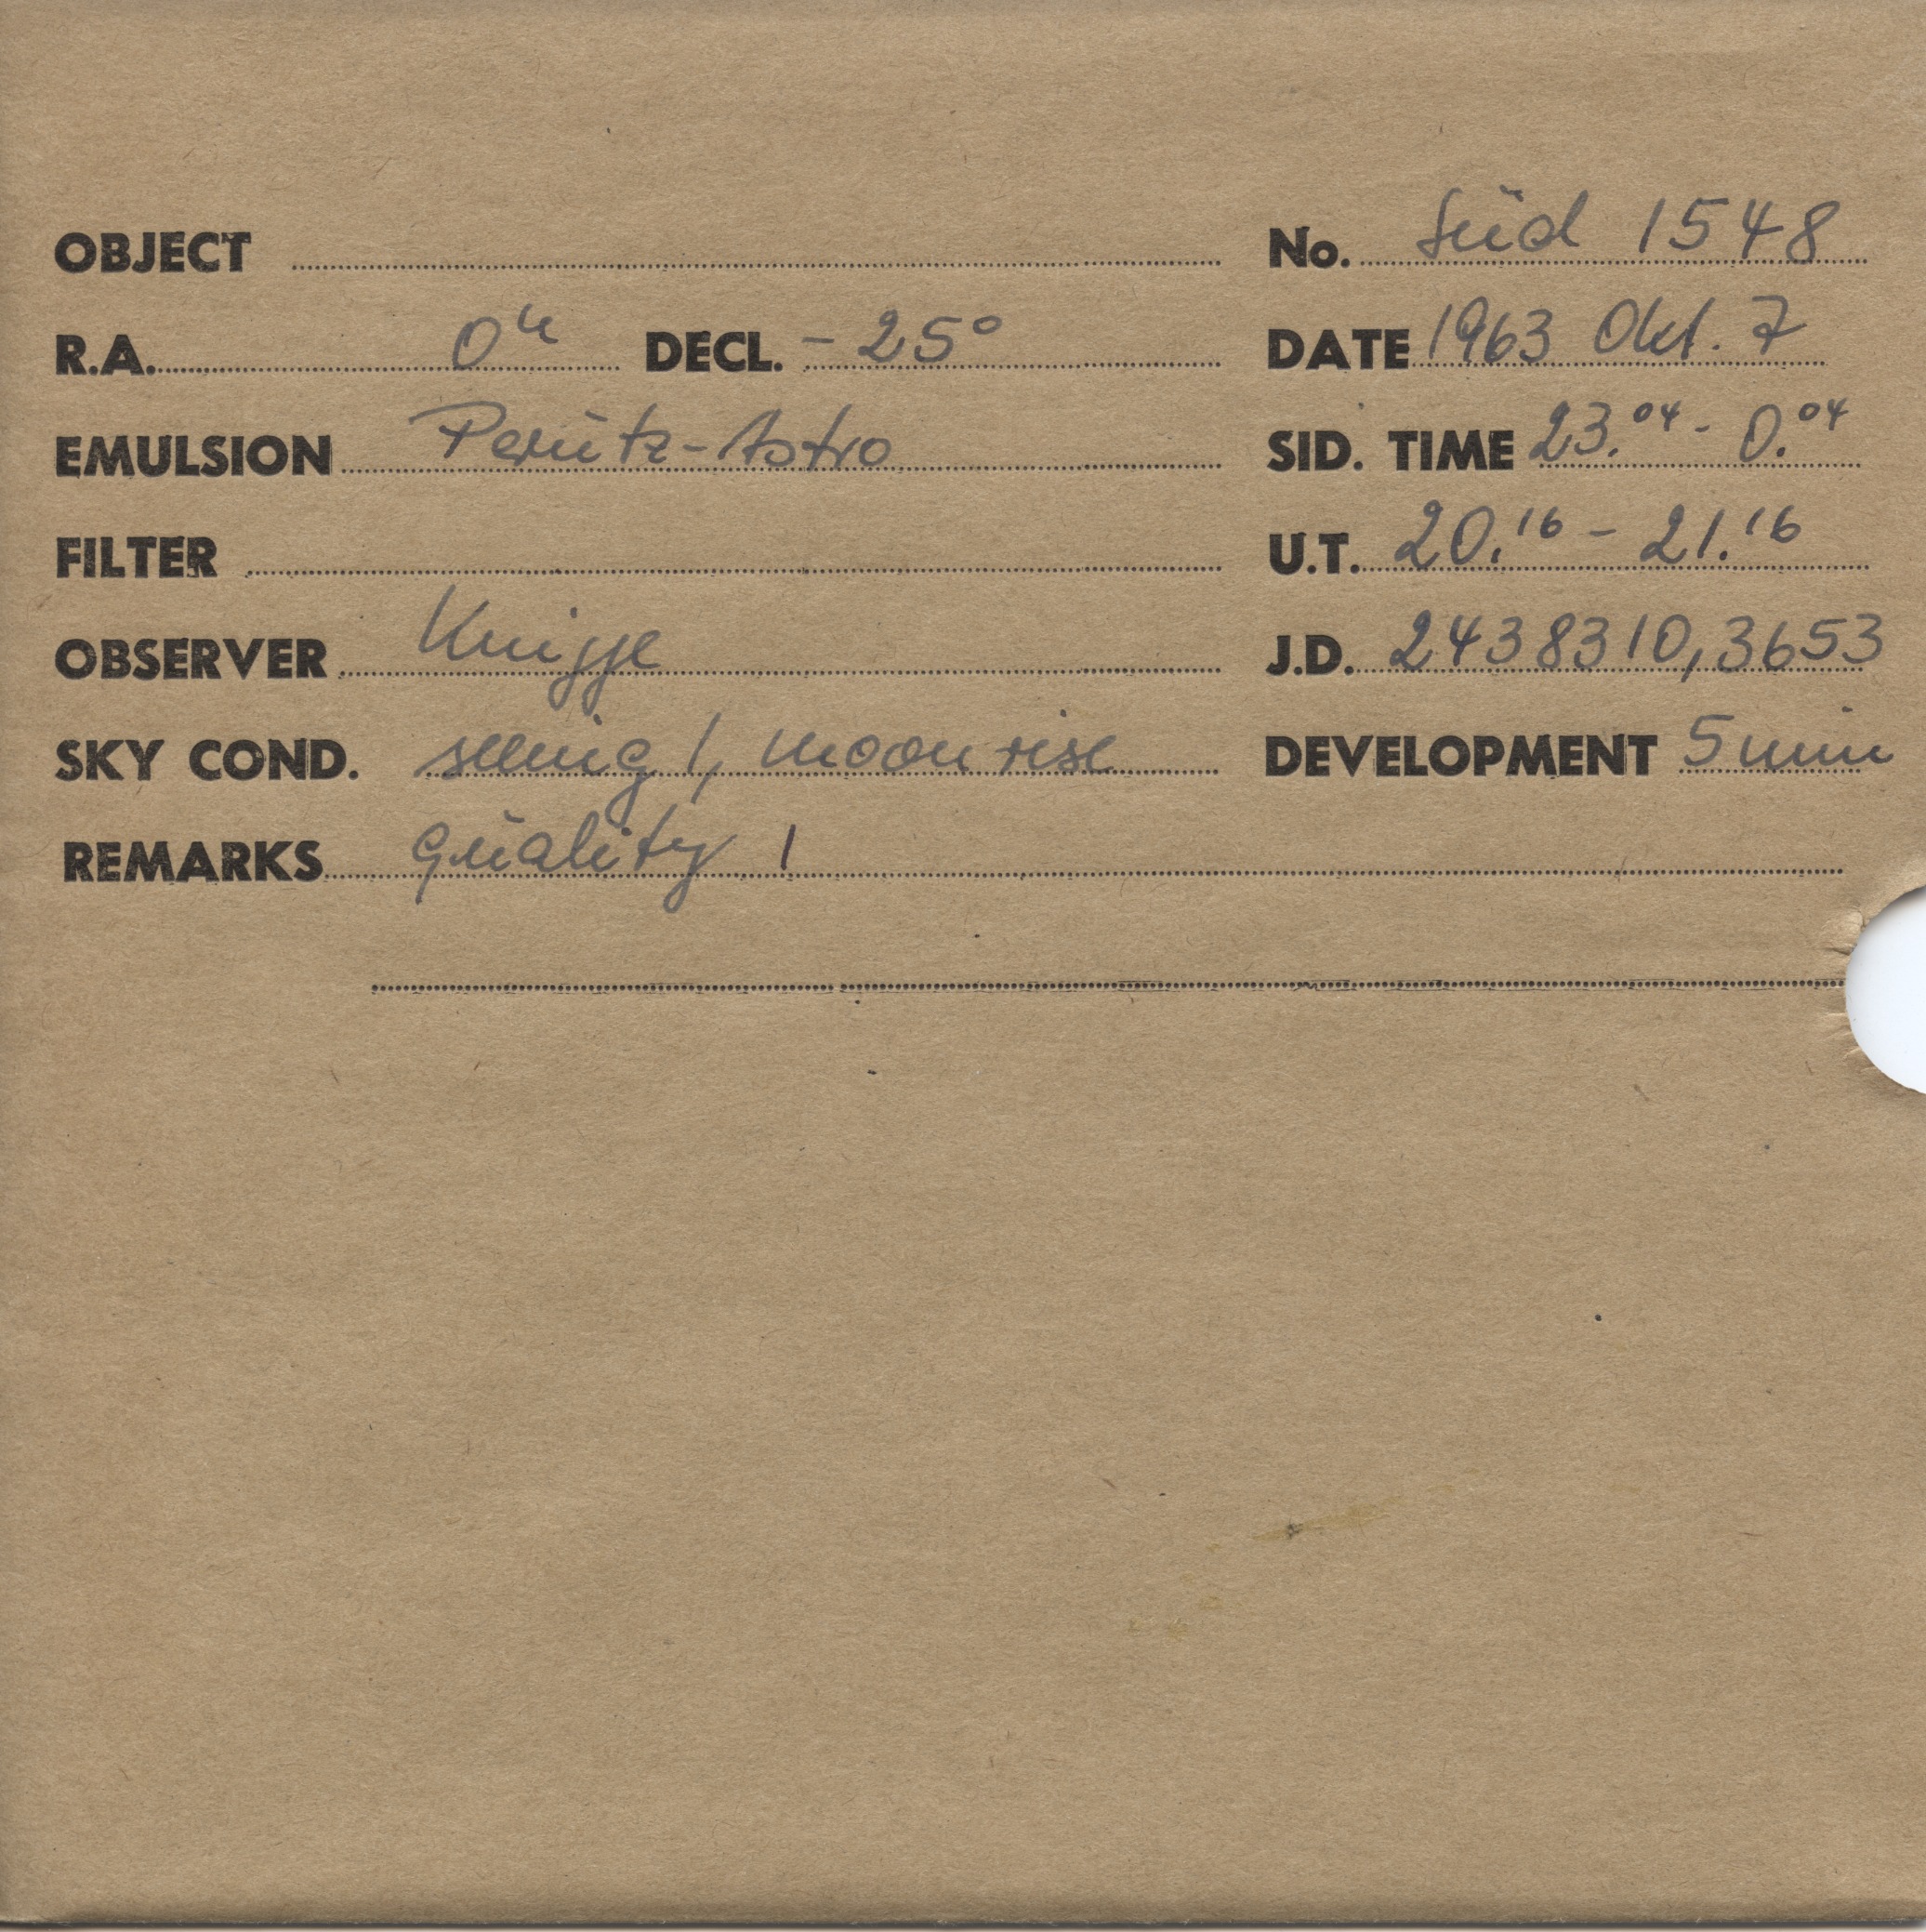 OBJECT No. Süd 1548
R.A. 0ʰ DECL. -25°
DATE 1963 Okt. 7
EMULSION Perutz-Astro
SID. TIME 23.⁰⁴ - 0.⁰⁴
FILTER U.T. 20.¹⁶ - 21.¹⁶
OBSERVER Knigge J.D. 2438310,3653
SKY COND. seeing 1, moonrise DEVELOPMENT 5 min
REMARKS quality 1